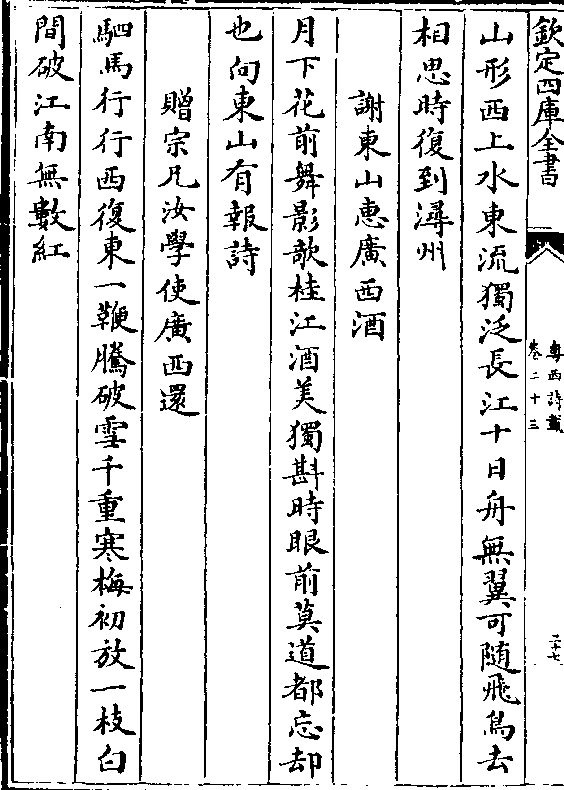 欽定四庫全書
粵西詩載
卷二十三
二十七
山形西上水東流獨泛長江十日舟無翼可隨飛鳥去
相思時復到潯州
謝東山惠廣西酒
月下花前舞影欹桂江酒美獨斟時眼前莫道都忘却
也向東山有報詩
贈宗凡汝學使廣西還
駟馬行行西復東一鞭騰破雪千重寒梅初放一枝白
間破江南無數紅